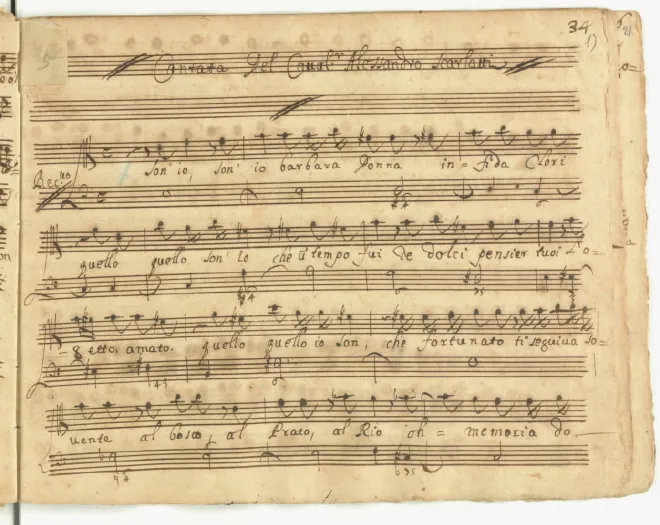 34
Cantata Del Caval.r Alessandro Scarlatti
son' io, son' io barbara Donna in = fida Clori
quello quello son' lo che ũ tempo fui de dolci pensier tuoi L'o=
=getto amato. quello quello io son, che fortunato ti seguiua so=
uente al bosco, al Prato, al Rio oh = memoria do